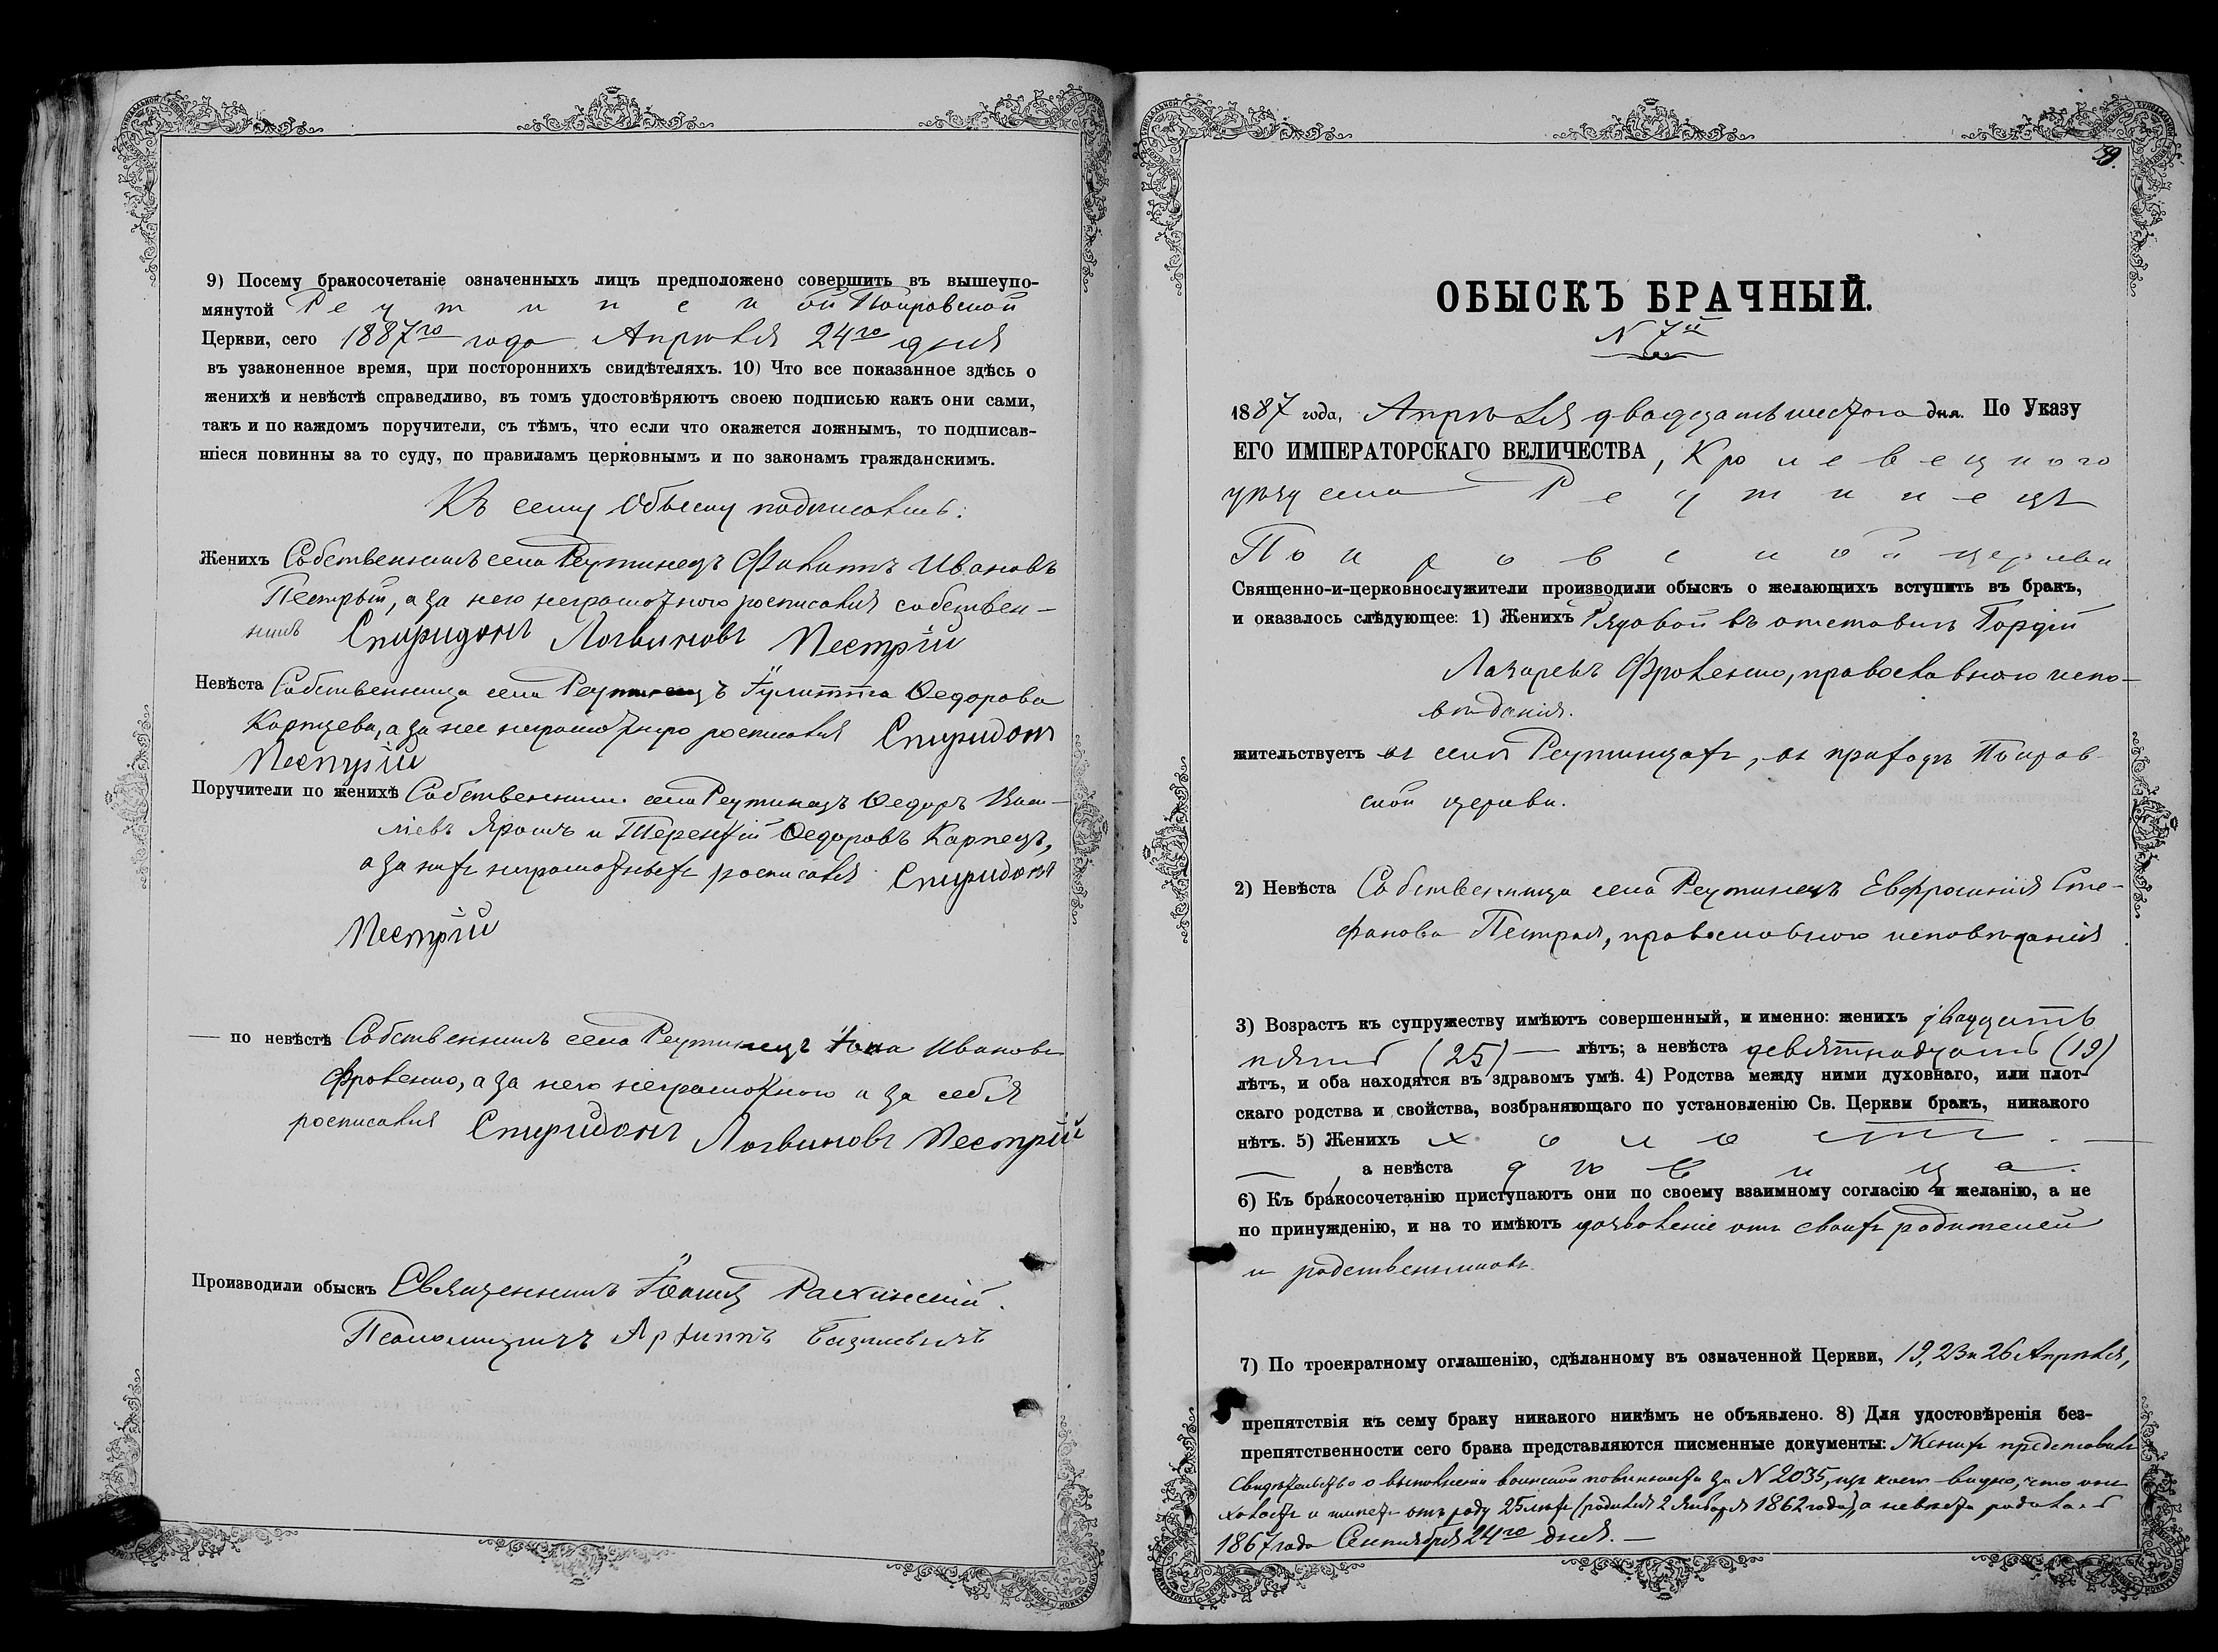 9) Посему бракосочетаніе означенныхъ лицъ предположено совершить въ вышеупо-
мянутой Реутинской Покровской
Церкви, сего 1887го года Апрѣля 24го дня
въ узаконенное время, при постороннихъ свидѣтеляхъ. 10) Что все показанное здѣсь о
женихѣ и невѣстѣ справедливо, въ томъ удостовѣряютъ своею подписью какъ они сами,
такъ и по каждомъ поручители, съ тѣмъ, что если что окажется ложнымъ, то подписав-
шіеся повинны за то суду, по правиламъ церковнымъ и по законамъ гражданскимъ.
Къ сему Обыску подписались:
Женихъ Собственникъ села Реутинецъ Филиппъ Ивановъ
Пестрый, а за него неграмотнаго росписался собствен-
никъ Спиридонъ Логвиновъ Пестрій
Невѣста Собственница села Реутинецъ Іулитта Ѳедорова
Карпцева, а за нее неграмотную росписался Спиридонъ
Пестрій
Поручители по женихѣ Собственники села Реутинецъ Ѳедоръ
Ярошъ и Терентій Ѳедоровъ Карпецъ,
а за нихъ неграмотныхъ росписался Спиридонъ
Пестрій
— по невѣстѣ Собственникъ села Реутинецъ Іона Ивановъ
Фроленко, а за него неграмотнаго и за себя
росписался Спиридонъ Логвиновъ Пестрій
Производили обыскъ Священникъ Іоаннъ
Псаломщикъ
39.
ОБЫСКЪ БРАЧНЫЙ.
N 7й
1887 года, Апрѣля двадцать шестого дня. По Указу
ЕГО ИМПЕРАТОРСКАГО ВЕЛИЧЕСТВА, Кролевецкого
уѣзу села Реутинецъ
Покровской церкви
Священно-и-церковнослужители производили обыскъ о желающихъ вступить въ бракъ,
и оказалось слѣдующее: 1) Женихъ Рядовой въ отставкѣ Гордій
Лазаревъ Фроленко, православного испо-
вѣданія.
жительствуетъ въ селѣ Реутинцахъ, въ приходѣ Покров-
ской церкви.
2) Невѣста Собственница села Реутинецъ Евфросинія Сте-
фанова Пестрая, православного исповѣданія
3) Возрастъ къ супружеству имѣютъ совершенный, и именно: женихъ двадцать
пять (25) — лѣтъ; а невѣста девятнадцать (19)
лѣтъ, и оба находятся въ здравомъ умѣ. 4) Родства между ними духовнаго, или плот-
скаго родства и свойства, возбраняющаго по установленію Св. Церкви бракъ, никакого
нѣтъ. 5) Женихъ холостъ. —
— , а невѣста дѣвица.
6) Къ бракосочетанію приступаютъ они по своему взаимному согласію и желанію, а не
по принужденію, и на то имѣютъ дозволеніе отъ своихъ родителей
и родственниковъ.
7) По троекратному оглашенію, сдѣланному въ означенной Церкви, 19, 23 и 26 Апрѣля,
препятствія къ сему браку никакого никѣмъ не объявлено. 8) Для удостовѣренія без-
препятственности сего брака представляются писменные документы: Женихъ представилъ
Свидѣтельство о выполненіи воинской повинности за N 2035, изъ коего видно, что онъ
холостъ и имѣетъ отъ роду 25 лѣтъ (родился 2 Января 1862 года), а невѣста родилась
1867 года Сентября 24го дня. —